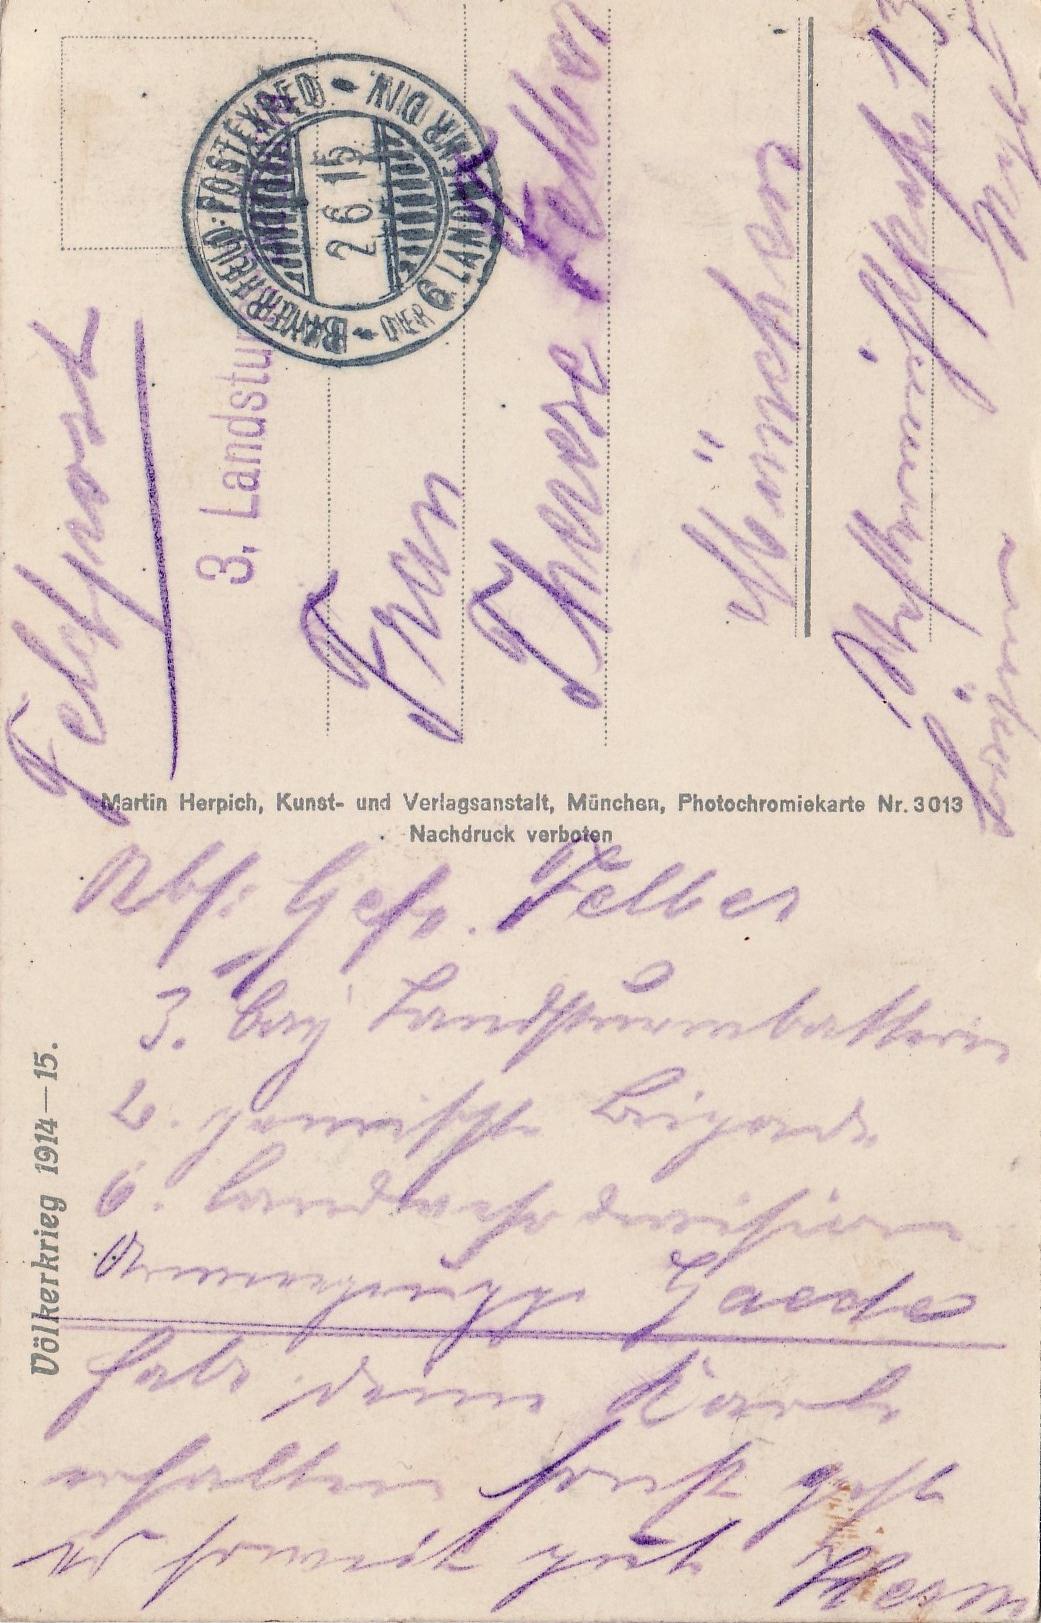 Feldpost
3. Landstu
BAYER. FELD-POSTEXPED
DER 6 LANDWEHR DIV.
2.6.15
Frau
Therese Felber
München
13
Martin Herpich, Kunst- und Verlagsanstalt, München, Photochromiekarte Nr. 3013
Nachdruck verboten
Völkerkrieg 1914–15.
Abs: Gefr. Felber
3. bay Landsturmbatterie
2. gemischte Brigade
6. Landwehrdivision
Armeegruppe Gaede
habe deine Karte
erhalten sonst geht
es soweit gut Herm